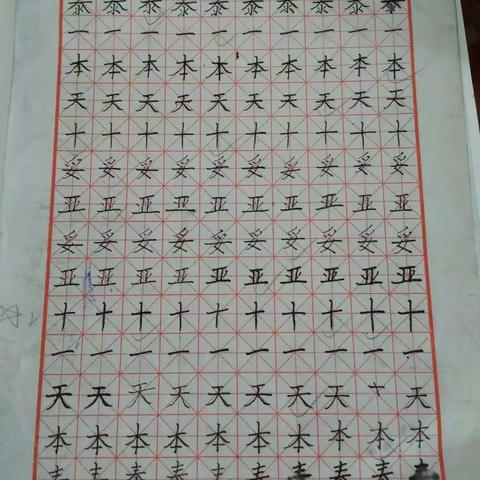 泰泰泰泰泰泰泰泰泰泰
一一一一一一一一一一
本本本本本本本本本本
天天天天天天天天天天
十十十十十十十十十十
妥妥妥妥妥妥妥妥妥妥
亚亚亚亚亚亚亚亚亚亚
妥妥妥妥妥妥妥妥妥妥
亚亚亚亚亚亚亚亚亚亚
十十十十十十十十十十
一一一一一一一一一一
天天天天天天天天十天
本本本本本本本本本本